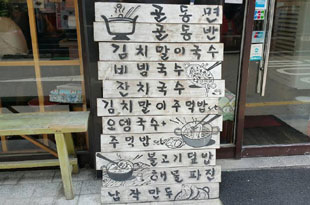 굴동면
굴동밥
김치말이국수
비빔국수
잔치국수
김치말이주먹밥
오뎅국수
주먹밥
불고기덮밥
해물파전
납작만두